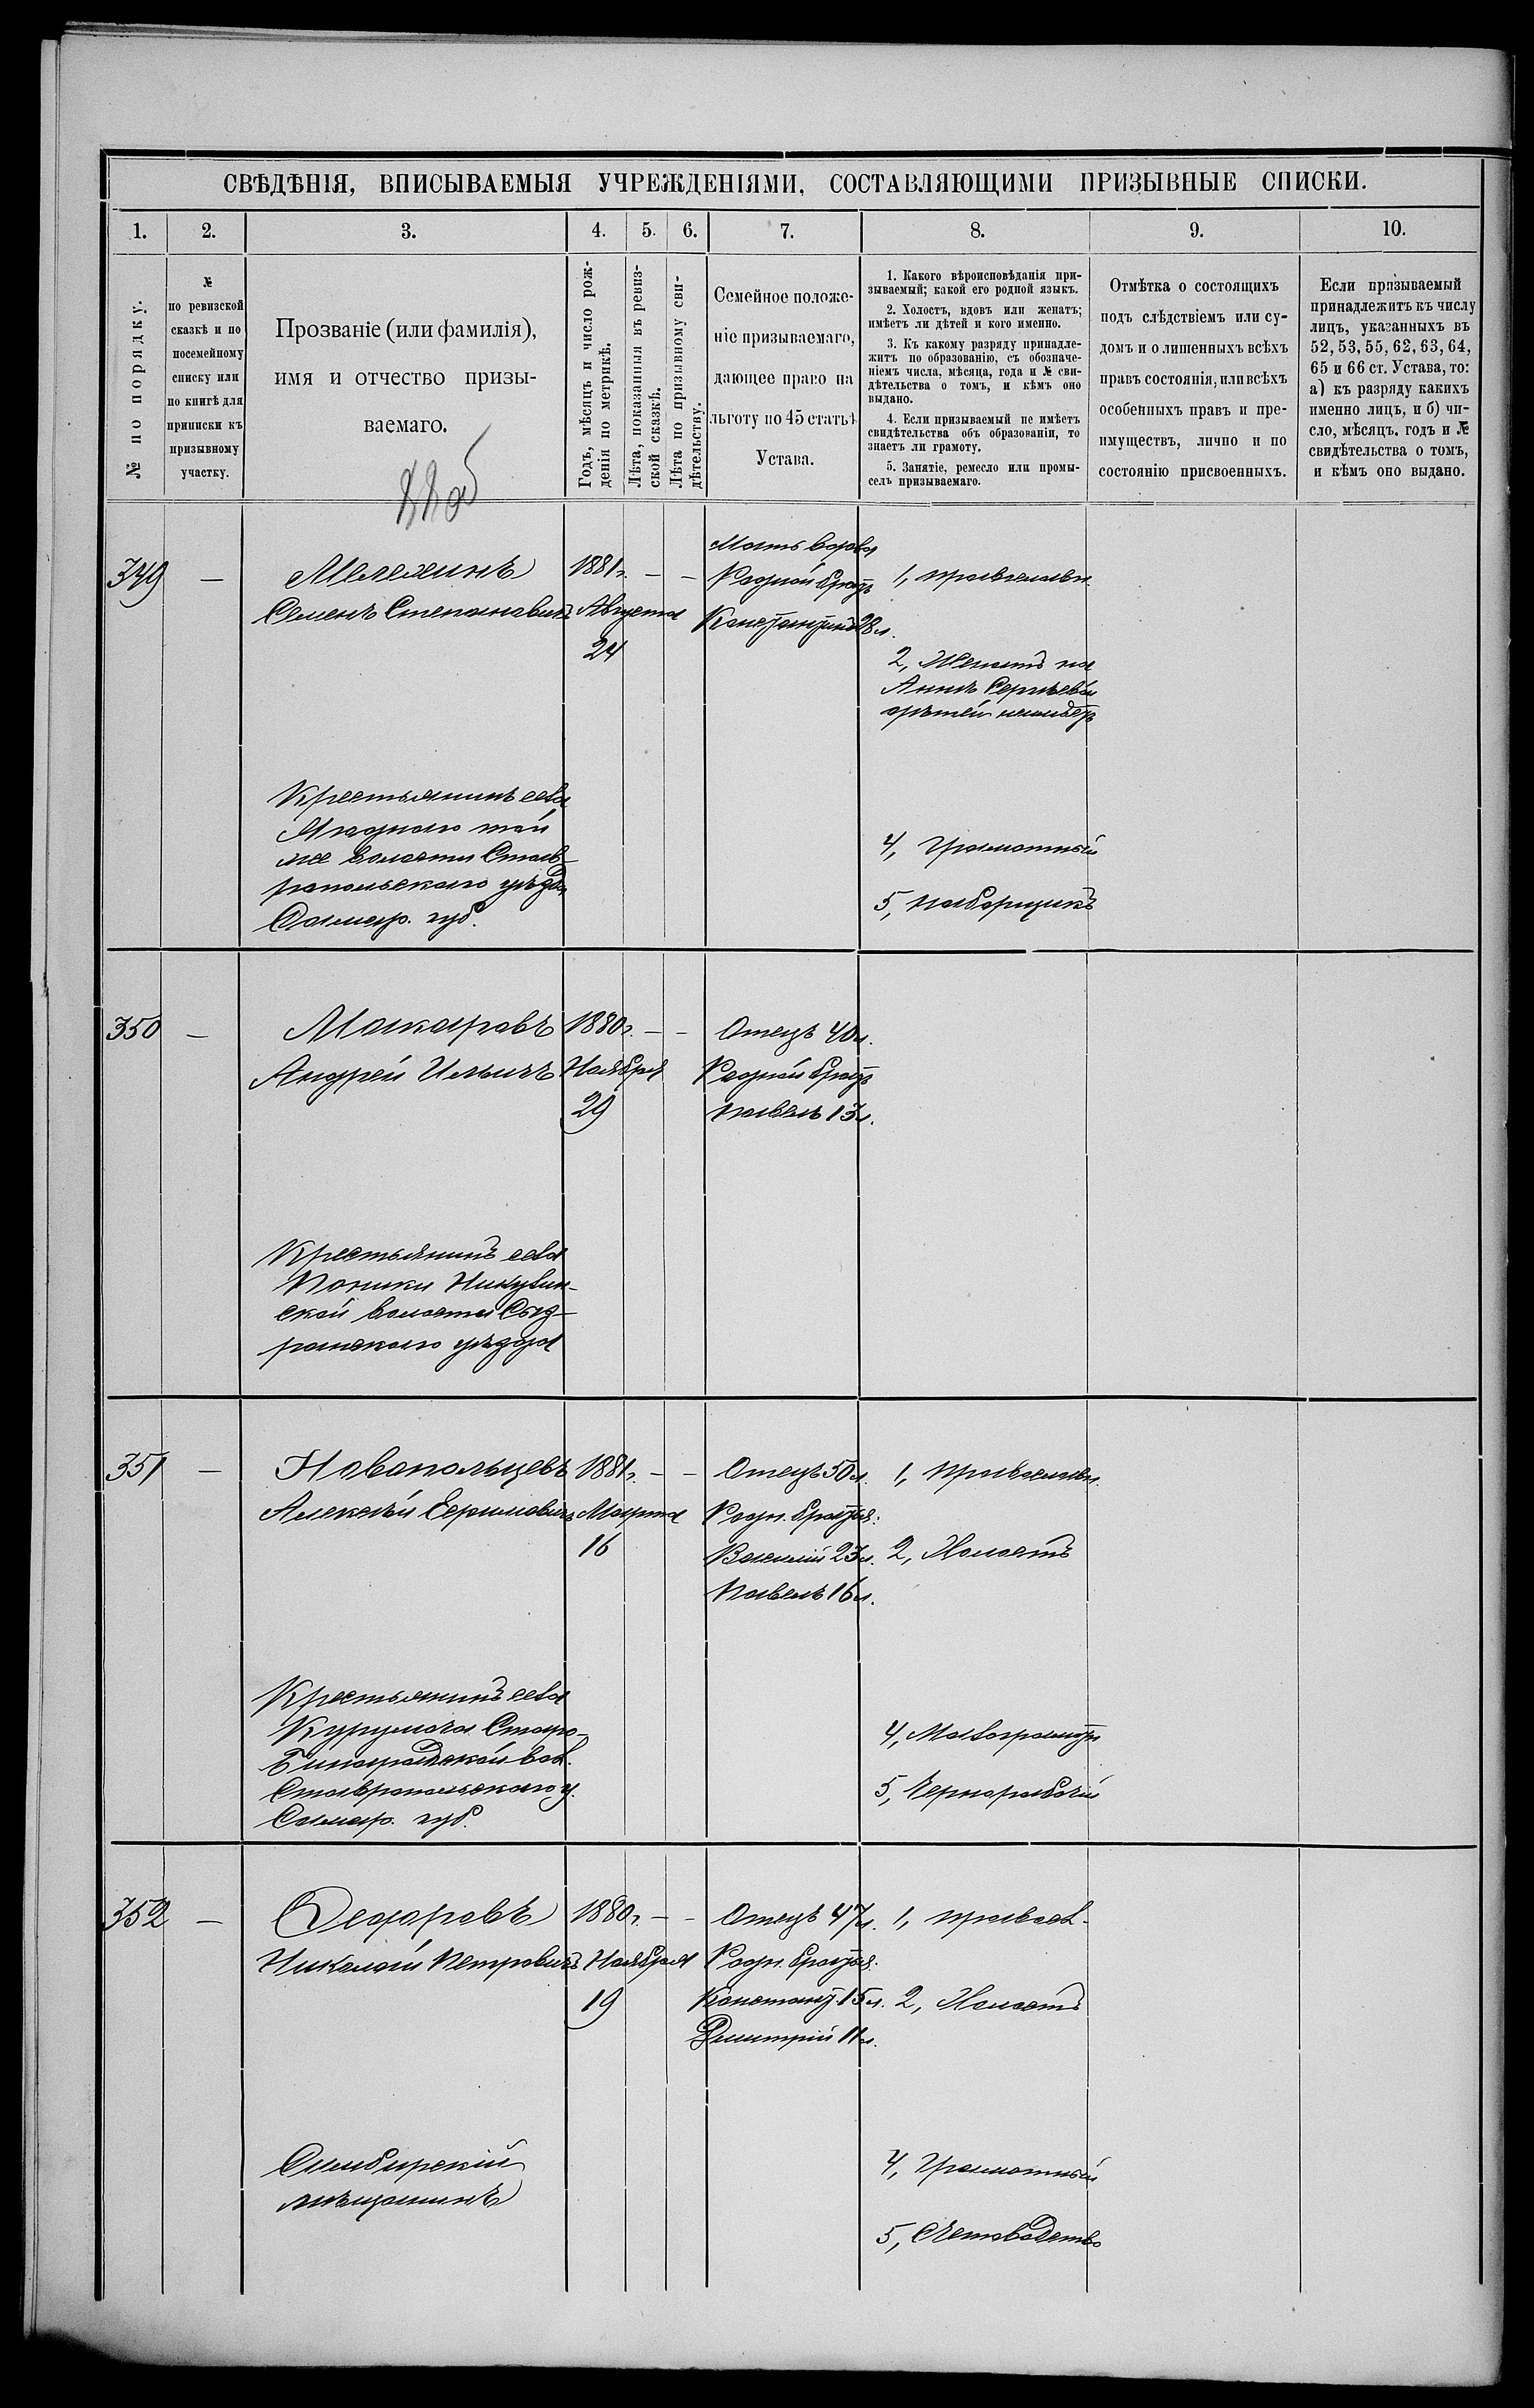 СВѢДѢНІЯ, ВПИСЫВАЕМЫЯ УЧРЕЖДЕНІЯМИ, СОСТАВЛЯЮЩИМИ ПРИЗЫВНЫЕ СПИСКИ.
1. 2. 3. 4. 5. 6. 7. 8. 9. 10.
№ по порядку.
№
по ревизской
сказкѣ и по
посемейному
списку или
по книгѣ для
приписки къ
призывному
участку.
Прозваніе (или фамилія),
имя и отчество призы-
ваемаго.
Годъ, мѣсяцъ и число рож-
денія по метрикѣ.
Лѣта, показанныя въ ревиз-
ской сказкѣ.
Лѣта по призывному сви-
дѣтельству.
Семейное положе-
ніе призываемаго,
дающее право на
льготу по 45 статьѣ
Устава.
1. Какого вѣроисповѣданія при-
зываемый; какой его родной языкъ.
2. Холостъ, вдовъ или женатъ;
имѣетъ ли дѣтей и кого именно.
3. Къ какому разряду принадле-
житъ по образованію, съ обозначе-
ніемъ числа, мѣсяца, года и № сви-
дѣтельства о томъ, и кѣмъ оно
выдано.
4. Если призываемый не имѣетъ
свидѣтельства объ образованіи, то
знаетъ ли грамоту.
5. Занятіе, ремесло или промы-
селъ призываемаго.
Отмѣтка о состоящихъ
подъ слѣдствіемъ или су-
домъ и о лишенныхъ всѣхъ
правъ состоянія, или всѣхъ
особенныхъ правъ и пре-
имуществъ, лично и по
состоянію присвоенныхъ.
Если призываемый
принадлежитъ къ числу
лицъ, указанныхъ въ
52, 53, 55, 62, 63, 64,
65 и 66 ст. Устава, то:
а) къ разряду какихъ
именно лицъ, и б) чи-
сло, мѣсяцъ, годъ и №
свидѣтельства о томъ,
и кѣмъ оно выдано.
349 —
Мелехинъ
Семенъ Степановичъ
1881г. — —
Августа
24
Мать вдова
Родной братъ
Константинъ 28 л.
1, православн.
2, Женатъ на
Аннѣ Сергѣевой
дѣтей неимѣетъ
4, Грамотный
5, наборщикъ
Крестьянинъ села
Ягоднаго той
же волости Став-
ропольскаго уѣзда
Самар. губ.
350 —
Макаровъ
Андрей Ильичъ
1880г. — —
Ноября
29
Отецъ 40 л.
Родной братъ
Павелъ 13 л.
Крестьянинъ села
ской волости Сыз-
ранскаго уѣзда
351 —
Новопольцевъ
Алексѣй Ефимовичъ
1881г. — —
Марта
16
Отецъ 50 л.
Родн. братья:
Василій 23 л.
Павелъ 16 л.
1, православн.
2, Холостъ
4, Малограмотн
5, Чернорабочій
Крестьянинъ села
Курумоча Старо-
Бинарадской вол.
Ставропольскаго у.
Самар. губ.
352 —
Федоровъ
Николай Петровичъ
1880г. — —
Ноября
19
Отецъ 47 л.
Родн. братья:
Констант. 15 л.
Дмитрій 11 л.
1, правосл.
2, Холостъ
4, Грамотный
5, Счетоводство
Симбирскій
мѣщанинъ